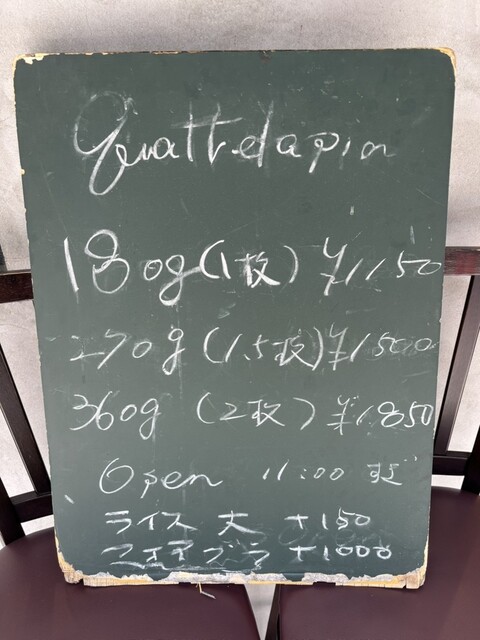 Quattedapin
180g (1枚) ¥1150
270g (1.5枚) ¥1500
360g (2枚) ¥1850
Open 11:00
ライス 大 +150
フォアグラ +1000